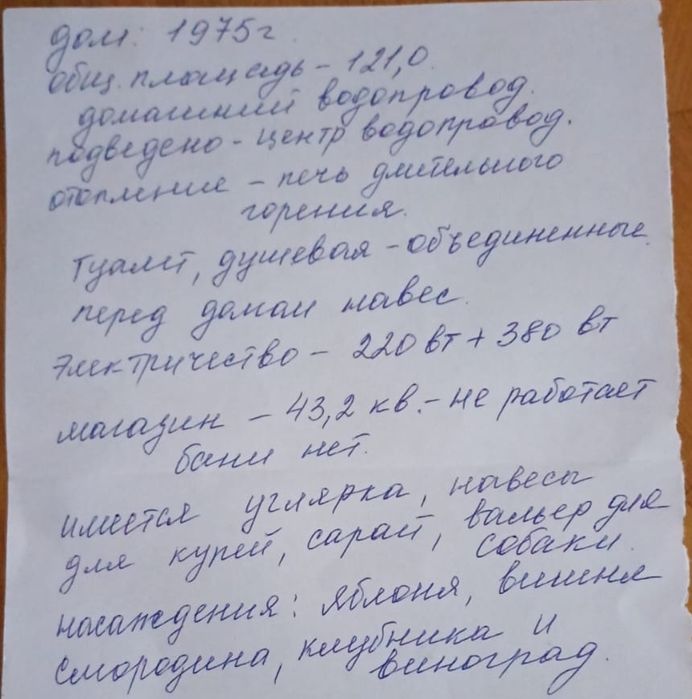 дом: 1975г
общ. площадь - 121,0.
домашний водопровод.
подведено - центр водопровод.
отопление - печь длительного
горения.
туалет, душевая - объединенные.
перед домом навес.
Электричество - 220 вт + 380 вт
магазин - 43,2 кв. - не работает
бани нет.
имеется углярка, навесы
для курей, сарай, вальер для
собаки.
насаждения: яблоня, вишня
смородина, клубника и
виноград.